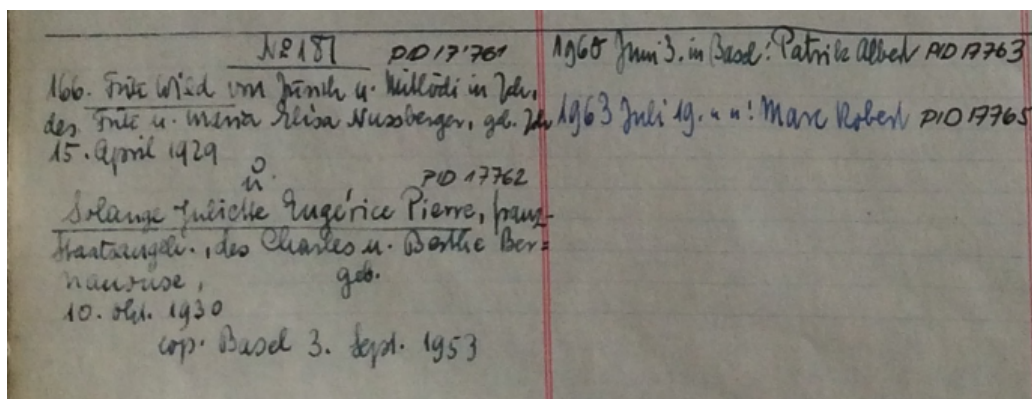 № 181 PID 17'761
166. Fritz Wild von Zürich u. Mitlödi in Zch,
des Fritz u. Maria Elisa Nussberger, geb. Zch
15. April 1929
u.
PID 17762
Solange Juliette Eugérice Pierre, franz-
Staatsangeh., des Charles u. Berthe Ber=
geb.
10. Okt. 1930
cop. Basel 3. Sept. 1953
1960 Juni 3. in Basel: Patrik Albert PID 17763
1963 Juli 19. " ": Marc Robert PID 17765